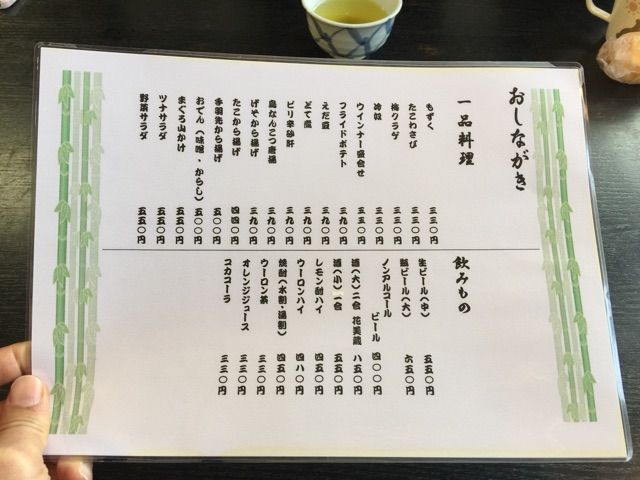 おしながき
一品料理
もずく 三三〇円
たこわさび 三三〇円
梅クラゲ 三三〇円
冷奴 三三〇円
ウインナー盛合せ 三九〇円
フライドポテト 三九〇円
えだ豆 三九〇円
どて煮 三九〇円
ピリ辛砂肝 三九〇円
鳥なんこつ唐揚 三九〇円
げそから揚げ 三九〇円
たこから揚げ 四四〇円
手羽先から揚げ 五〇〇円
おでん(味噌・からし) 五〇〇円
まぐろ山かけ 五五〇円
ツナサラダ 五五〇円
野菜サラダ 五五〇円
飲みもの
生ビール(中) 五五〇円
瓶ビール(大) 六五〇円
ノンアルコール
ビール 四〇〇円
酒(大)二合 花美蔵 八五〇円
酒(小)一合 五五〇円
レモン酎ハイ 四五〇円
ウーロンハイ 四八〇円
焼酎(水割・湯割) 四五〇円
ウーロン茶 三三〇円
オレンジジュース 三三〇円
コカコーラ 三三〇円